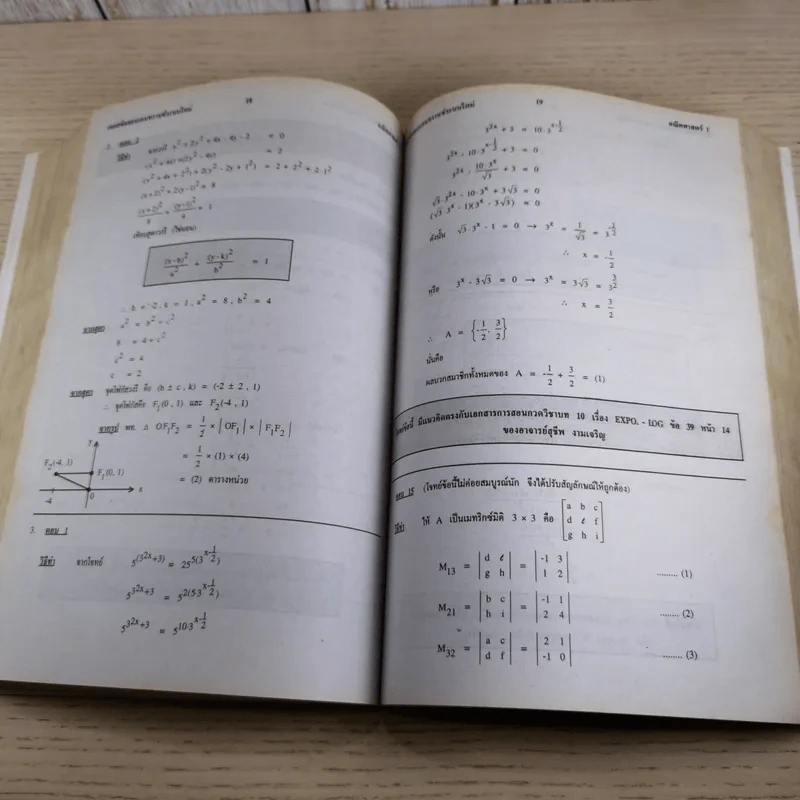 18
2. ตอบ 2
วิธีทำ จาก x² + 2y² + 4x - 4y - 2 = 0
(x² + 4x) + (2y² - 4y) = 2
(x² + 4x + 2²) + 2(y² - 2y + 1²) = 2 + 2² + 2·1²
(x+2)² + 2(y-1)² = 8
(x+2)²/8 + (y-1)²/4 = 1
เทียบสูตรวงรี (ใช่นอน)
(x-h)²/a² + (y-k)²/b² = 1
∴ h = -2, k = 1, a² = 8, b² = 4
จากสูตร a² = b² + c²
8 = 4 + c²
c² = 4
c = 2
จากสูตร จุดโฟกัสวงรี คือ (h ± c, k) = (-2 ± 2, 1)
∴ จุดโฟกัสคือ F₁(0, 1) และ F₂(-4, 1)
จากรูป พท. △ OF₁F₂ = 1/2 × |OF₁| × |F₁F₂|
= 1/2 × (1) × (4)
= (2) ตารางหน่วย
y
F₂(-4, 1)
F₁(0, 1)
-4 0 x
3. ตอบ 1
วิธีทำ จากโจทย์ 5^(3^(2x)+3) = 25^(5(3^(x-1/2)))
5^(3^(2x)+3) = 5^(2(5·3^(x-1/2)))
5^(3^(2x)+3) = 5^(10·3^(x-1/2))
19
คณิตศาสตร์ 1
3^(2x) + 3 = 10·3^(x-1/2)
3^(2x) - 10·3^(x-1/2) + 3 = 0
3^(2x) - 10·3^x/√3 + 3 = 0
√3·3^(2x) - 10·3^x + 3√3 = 0
(√3·3^x - 1)(3^x - 3√3) = 0
ดังนั้น √3·3^x - 1 = 0 → 3^x = 1/√3 = 3^(-1/2)
∴ x = -1/2
หรือ 3^x - 3√3 = 0 → 3^x = 3√3 = 3^(3/2)
∴ x = 3/2
∴ A = {-1/2, 3/2}
นั่นคือ
ผลบวกสมาชิกทั้งหมดของ A = -1/2 + 3/2 = (1)
โจทย์ข้อนี้ มีแนวคิดตรงกับเอกสารการสอนกวดวิชาบท 10 เรื่อง EXPO. - LOG ข้อ 39 หน้า 14
ของอาจารย์สุชีพ งามเจริญ
ตอบ 15 (โจทย์ข้อนี้ไม่ค่อยสมบูรณ์นัก จึงได้ปรับสัญลักษณ์ให้ถูกต้อง)
วิธีทำ ให้ A เป็นเมทริกซ์มิติ 3 × 3 คือ
a b c
d ℓ f
g h i
M₁₃ = |d ℓ| = |-1 3| ........ (1)
|g h| |1 2|
M₂₁ = |b c| = |-1 1| ........ (2)
|h i| |2 4|
M₃₂ = |a c| = |2 1| ........ (3)
|d f| |-1 0|